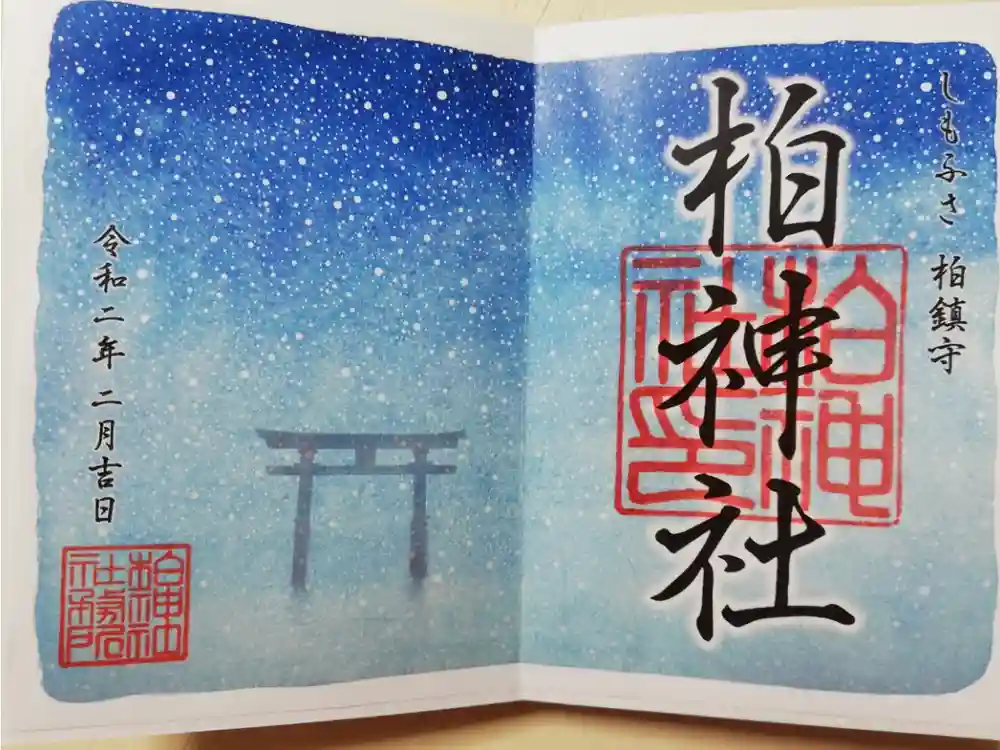 しもふさ 柏鎮守
柏神社
柏神社印
令和二年 二月吉日
柏神社社務所